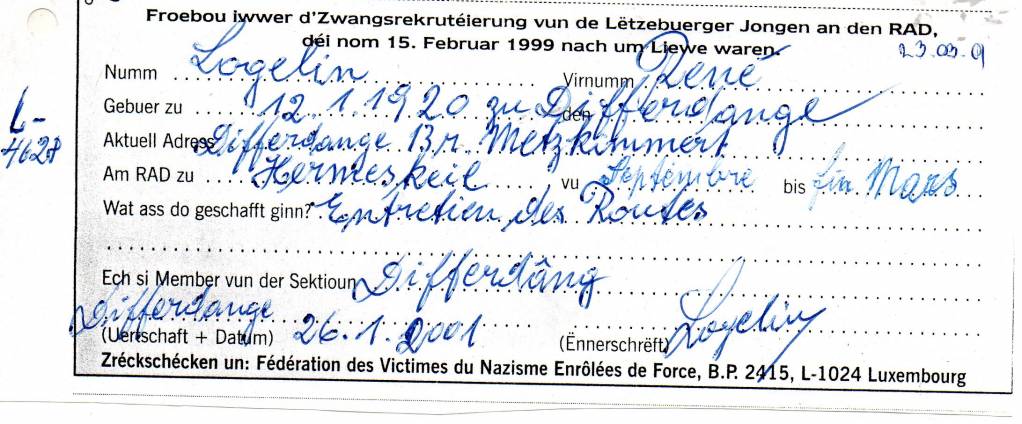 Froebou iwwer d'Zwangsrekrutéierung vun de Lëtzebuerger Jongen an den RAD,
déi nom 15. Februar 1999 nach um Liewe waren.
Numm Logelin Virnumm René
Gebuer zu 12.1.1920 zu Differdange den
L-4628
Aktuell Adress Differdange 13 r. Metzkimmert
Am RAD zu Hermeskeil vu Septembre bis fin Mars
Wat ass do geschafft ginn? Entretien des Routes
Ech si Member vun der Sektioun Differdäng
Differdange 26.1.2001 Logelin
(Uertschaft + Datum) (Ënnerschrëft)
Zréckschécken un: Fédération des Victimes du Nazisme Enrôlées de Force, B.P. 2415, L-1024 Luxembourg